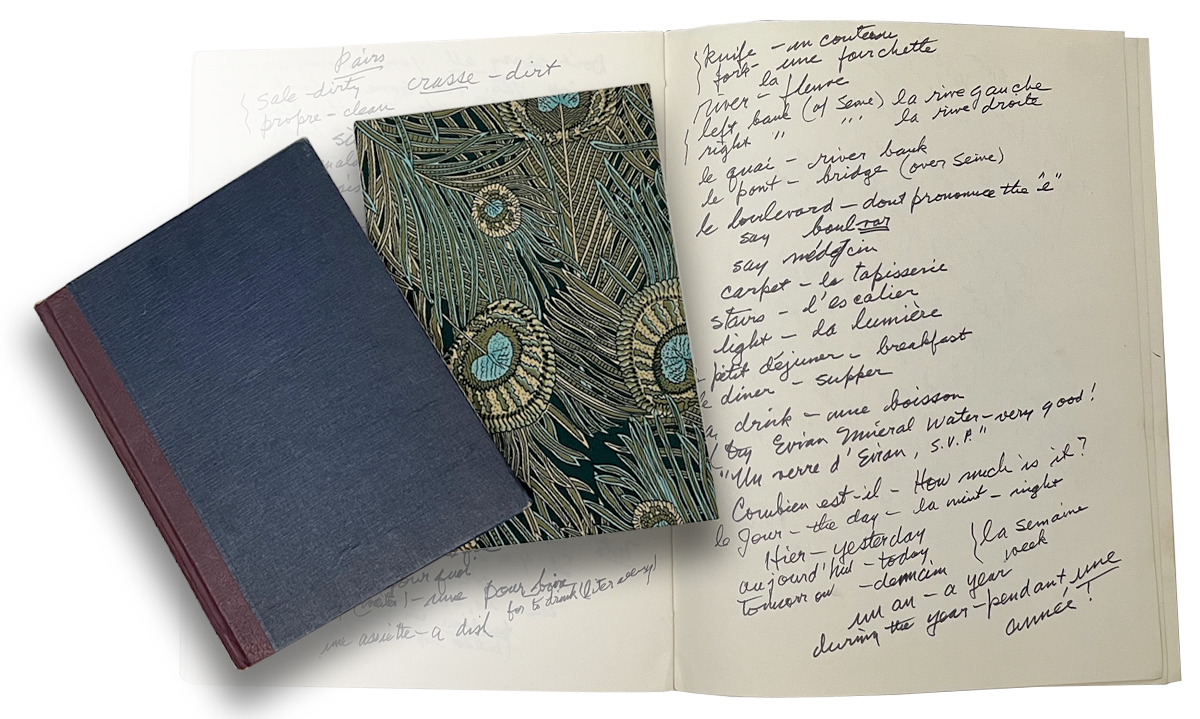 Pairs
sale - dirty crasse - dirt
propre - clean
pour quoi
- une pour boire
for to drink (literally)
une assiette - a dish
knife - un couteau
fork - une fourchette
la
river - fleuve
left bank (of Seine) la rive gauche
right " " " la rive droite
le quai - river bank
le pont - bridge (over Seine)
le boulevard - dont pronounce the "e"
say boulvar
say médecin
carpet - la tapisserie
stairs - l'escalier
light - la lumière
petit déjeuner - breakfast
le diner - supper
drink - une boisson
try Evian Mineral Water - very good!
"Un verre d'Evian, S.V.P."
Combien est-il - How much is it?
le Jour - the day - la nuit - night
Hier - yesterday
aujourd'hui - today
tomorrow - demain
la semaine
week
un an - a year
during the year - pendant une
année!